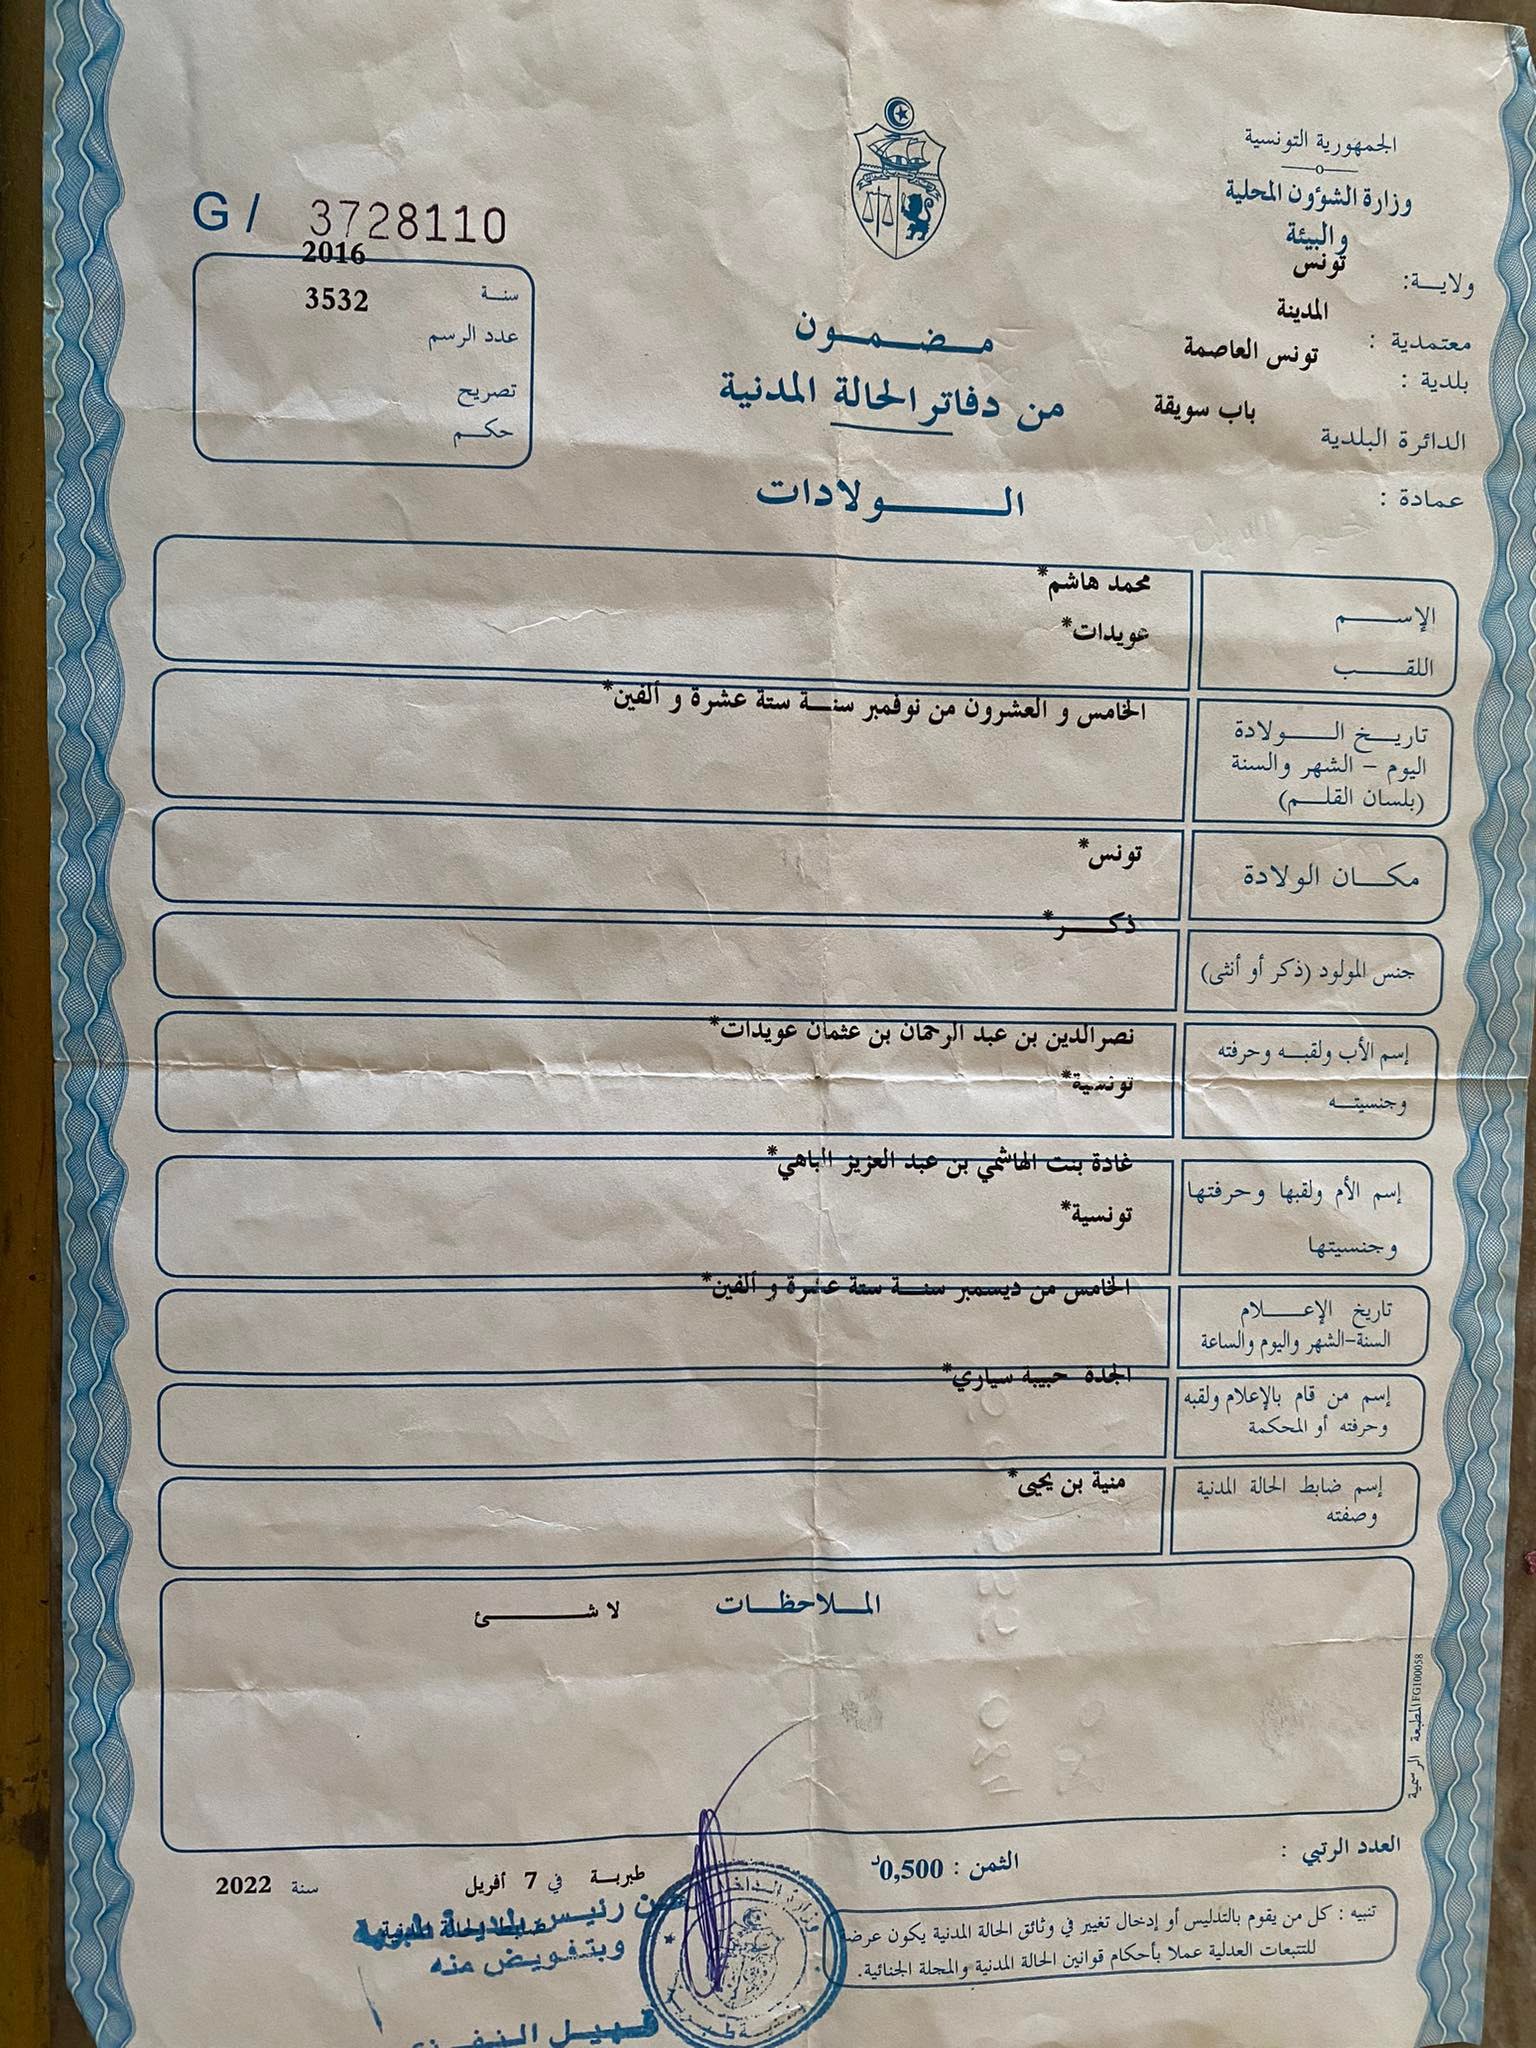 الجمهورية التونسية
وزارة الشؤون المحلية
والبيئة
ولاية: تونس
معتمدية : المدينة
بلدية : تونس العاصمة
الدائرة البلدية باب سويقة
عمادة :
G / 3728110
سنة 2016
عدد الرسم 3532
تصريح
حكم
مضمون
من دفاتر الحالة المدنية
الولادات
الإسم محمد هاشم*
اللقب عويدات*
تاريخ الولادة الخامس و العشرون من نوفمبر سنة ستة عشرة و ألفين*
اليوم - الشهر والسنة
(بلسان القلم)
مكان الولادة تونس*
جنس المولود (ذكر أو أنثى) ذكر*
إسم الأب ولقبه وحرفته نصرالدين بن عبد الرحمان بن عثمان عويدات*
وجنسيته تونسية*
إسم الأم ولقبها وحرفتها غادة بنت الهاشمي بن عبد العزيز الباهي*
وجنسيتها تونسية*
تاريخ الإعلام الخامس من ديسمبر سنة ستة عشرة و ألفين*
السنة-الشهر واليوم والساعة
إسم من قام بالإعلام ولقبه الجدة حبيبة سياري*
وحرفته أو المحكمة
إسم ضابط الحالة المدنية منية بن يحيى*
وصفته
الملاحظات لا شئ
المطبعة الرسمية FG100058
العدد الرتبي :
الثمن : 0,500د
طبربة في 7 أفريل سنة 2022
تنبيه : كل من يقوم بالتدليس أو إدخال تغيير في وثائق الحالة المدنية يكون عرضة
للتتبعات العدلية عملا بأحكام قوانين الحالة المدنية والمجلة الجنائية.
عن رئيس بلدية طبربة
وبتفويض منه